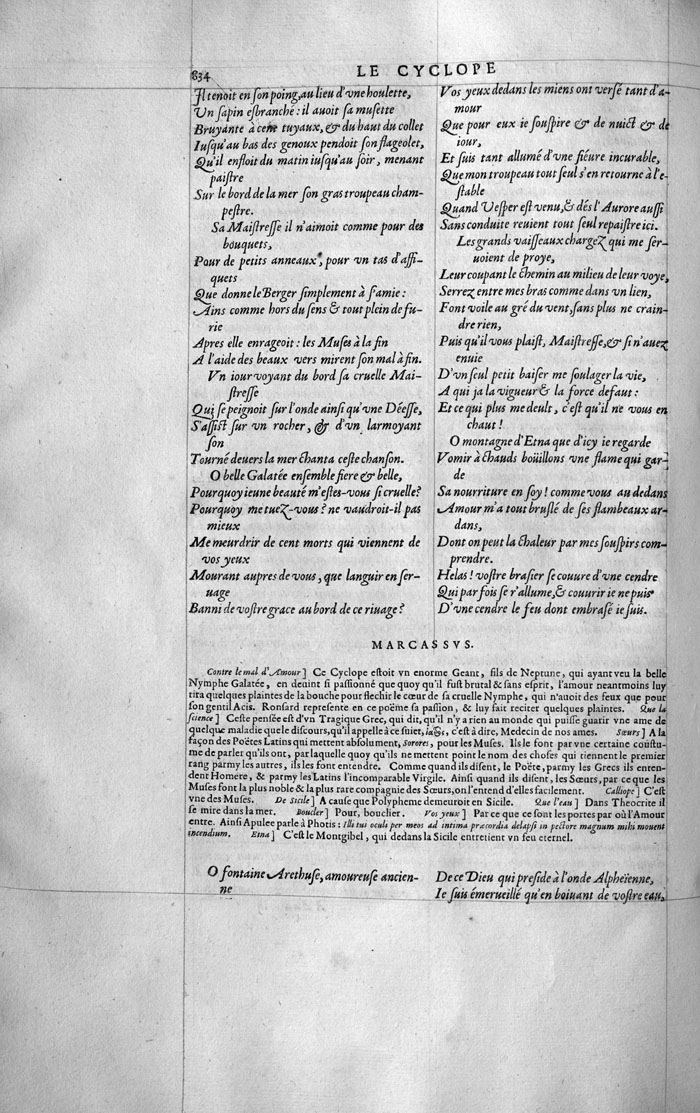 834
LE CYCLOPE
Il tenoit en son poing, au lieu d'vne houlette,
Vn sapin esbranché : il auoit sa musette
Bruyante à cent tuyaux, & du haut du collet
Iusqu'au bas des genoux pendoit son flageolet,
Qu'il enfloit du matin iusqu'au soir, menant
paistre
Sur le bord de la mer son gras troupeau cham-
pestre.
Sa Maistresse il n'aimoit comme pour des
bouquets,
Pour de petits anneaux, pour vn tas d'affi-
quets
Que donne le Berger simplement à s'amie :
Ains comme hors du sens & tout plein de fu-
rie
Apres elle enrageoit : les Muses à la fin
A l'aide des beaux vers mirent son mal à fin.
Vn iour voyant du bord sa cruelle Mai-
stresse
Qui se peignoit sur l'onde ainsi qu'vne Déesse,
S'assist sur vn rocher, & d'vn larmoyant
son
Tourné deuers la mer chanta ceste chanson.
O belle Galatée ensemble fiere & belle,
Pourquoy ieune beauté m'estes-vous si cruelle?
Pourquoy me tuez-vous? ne vaudroit-il pas
mieux
Me meurdrir de cent morts qui viennent de
vos yeux
Mourant aupres de vous, que languir en ser-
uage
Banni de vostre grace au bord de ce riuage?
Vos yeux dedans les miens ont versé tant d'a-
mour
Que pour eux ie souspire & de nuict & de
iour,
Et suis tant allumé d'vne fiéure incurable,
Que mon troupeau tout seul s'en retourne à l'e-
stable
Quand Vesper est venu, & dés l'Aurore aussi
Sans conduite reuient tout seul repaistre ici.
Les grands vaisseaux chargez qui me ser-
uoient de proye,
Leur coupant le chemin au milieu de leur voye,
Serrez entre mes bras comme dans vn lien,
Font voile au gré du vent, sans plus ne crain-
dre rien,
Puis qu'il vous plaist, Maistresse, & si n'auez
enuie
D'vn seul petit baiser me soulager la vie,
A qui ja la vigueur & la force defaut :
Et ce qui plus me deult, c'est qu'il ne vous en
chaut!
O montagne d'Etna que d'icy ie regarde
Vomir à chauds boüillons vne flame qui gar-
de
Sa nourriture en soy! comme vous au dedans
Amour m'a tout bruslé de ses flambeaux ar-
dans,
Dont on peut la chaleur par mes souspirs com-
prendre.
Helas! vostre brasier se couure d'vne cendre
Qui par fois se r'allume, & couurir ie ne puis
D'vne cendre le feu dont embrasé ie suis.
MARCASSVS.
Contre le mal d'Amour ] Ce Cyclope estoit vn enorme Geant, fils de Neptune, qui ayant veu la belle
Nymphe Galatée, en deuint si passionné que quoy qu'il fust brutal & sans esprit, l'amour neantmoins luy
tira quelques plaintes de la bouche pour flechir le cœur de sa cruelle Nymphe, qui n'auoit des feux que pour
son gentil Acis. Ronsard represente en ce poëme sa passion, & luy fait reciter quelques plaintes. Que la
science ] Ceste pensée est d'vn Tragique Grec, qui dit, qu'il n'y a rien au monde qui puisse guarir vne ame de
quelque maladie quele discours, qu'il appelle à ce suiet, c'est à dire, Medecin de nos ames. Sœurs ] A la
façon des Poëtes Latins qui mettent absolument, Sorores, pour les Muses. Ils le font par vne certaine coustu-
me de parler qu'ils ont, par laquelle quoy qu'ils ne mettent point le nom des choses qui tiennent le premier
rang parmy les autres, ils les font entendre. Comme quand ils disent, le Poëte, parmy les Grecs ils enten-
dent Homere, & parmy les Latins l'incomparable Virgile. Ainsi quand ils disent, les Sœurs, par ce que les
Muses font la plus noble & la plus rare compagnie des Sœurs, on l'entend d'elles facilement. Calliope ] C'est
vne des Muses. De Sicile ] A cause que Polypheme demeuroit en Sicile. Que l'eau ] Dans Theocrite il
se mire dans la mer. Boucler ] Pour, bouclier. Vos yeux ] Par ce que ce sont les portes par où l'Amour
entre. Ainsi Apulee parle à Photis : Illi tui oculi per meos ad intima præcordia delapsi in pectore magnum mihi mouent
incendium. Etna ] C'est le Montgibel, qui dedans la Sicile entretient vn feu eternel.
O fontaine Arethuse, amoureuse ancien-
ne
De ce Dieu qui preside à l'onde Alpheïenne,
Ie suis émerueillé qu'en boiuant de vostre eau,